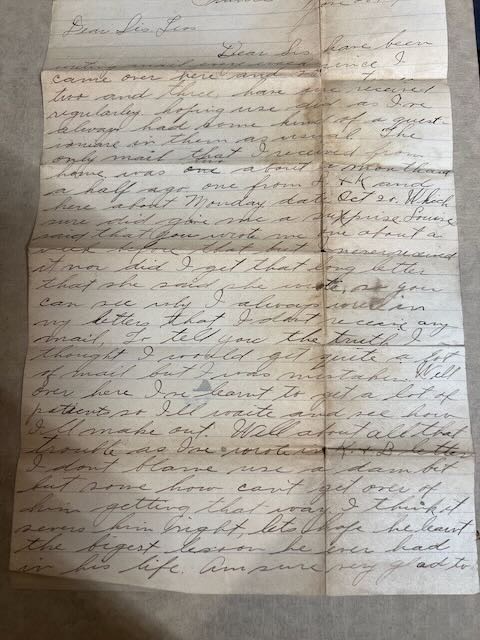 France
Dear Sis Leos
Dear Sis have been
writing since I
came over here and
two and three have received
regularly hoping use did as I've
always had some kind of a quest
ionare in them as usual. The
only mail that I received from
home was one about a month and
a half ago one from K and
here about Monday date Oct 20. Which
sure did give me a surprise Louise
said that you wrote me one about a
week before that but I never received
it nor did I get that long letter
that she said she wrote, so you
can see why I always in
my letters that I dont receive any
mail, To tell you the truth I
thought I would get quite a lot
of mail but I was mistaken. Well
over here I've learnt to get a lot of
patients so I'll waite and see how
I'll make out. Well about all that
trouble as I've wrote in K. & D. letter
I dont blame use a dambit
but some how can't get over of
him getting that way I think it
severs him right, lets hope he learnt
the bigest lesson he ever had
in his life. Am sure very glad to